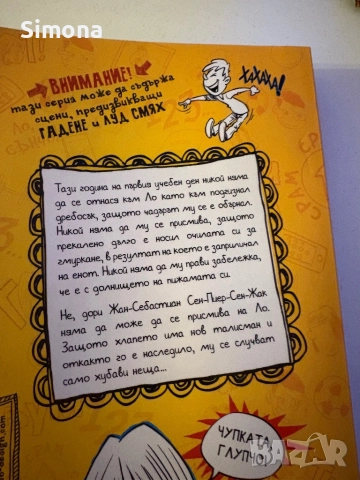 Simona
ВНИМАНИЕ!
тази серия може да съдържа
сцени, предизвикващи
ГАДЕНЕ и ЛУД СМЯХ
ХАХАХА!
Тази година на първия учебен ден никой няма
да се отнася към Ло като към подгизнал
дребосък, защото чадърът му се е обърнал.
Никой няма да му се присмива, защото
прекалено дълго е носил очилата си за
гмуркане, в резултат на което е заприличал
на енот. Никой няма да му прави забележка,
че е с долнището на пижамата си.
Не, дори Жан-Себастиан Сен-Пиер-Сен-Жак
няма да може да се присмива на Ло.
Защото хлапето има нов талисман и
откакто го е наследило, му се случват
само хубави неща...
ЧУПКАТА,
ГЛУПЧО!
BAZAR